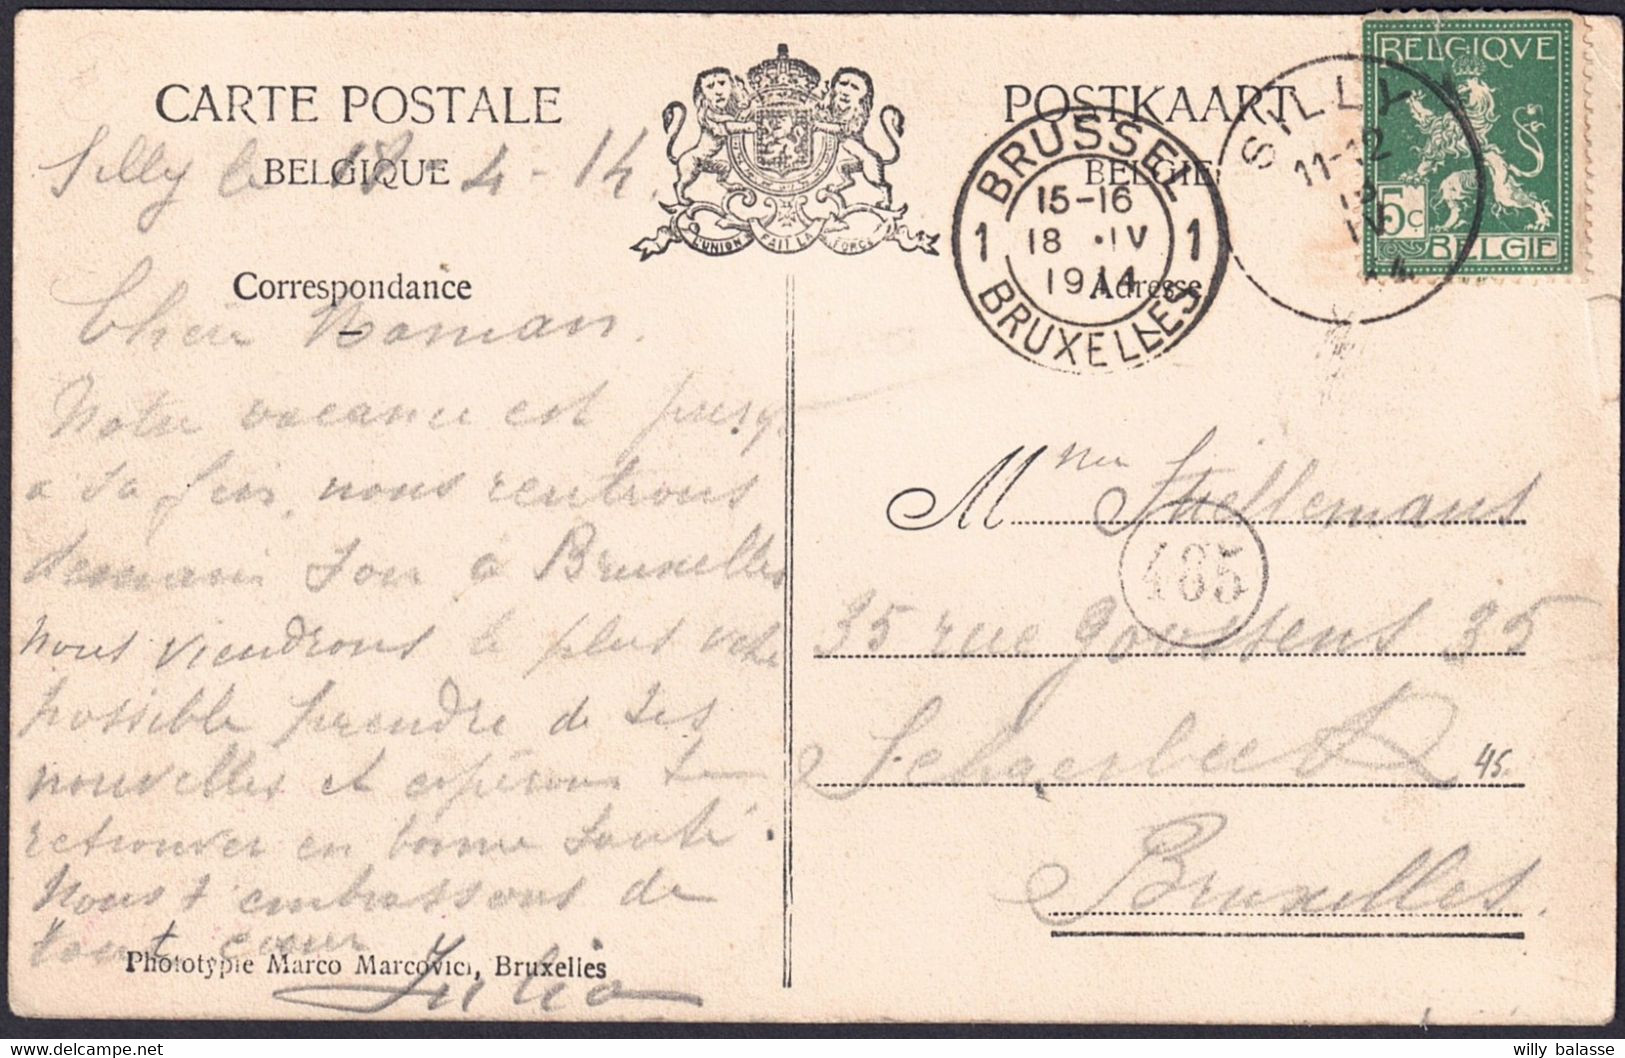 CARTE POSTALE
BELGIQUE
L'UNION FAIT LA FORCE
POSTKAART
BELGIE
BRUSSEL
15-16
1 18 IV 1
1914
BRUXELLES
SILLY
11-12
IV
BELGIQVE
5c
BELGIE
Silly le 18-4-14.
Correspondance
Adresse
Chère Maman.
Notre vacance est presq.
a sa fin, nous rentrons
demain soir à Bruxelles
nous viendrons le plus vite
possible prendre de tes
nouvelles et espérons te
retrouver en bonne santé.
Nous t embrassons de
tout cœur
Julia
Phototypie Marco Marcovici, Bruxelles
Mme Stellemans
485
35 rue Goossens 35
Schaerbeek
45.
Bruxelles.
delcampe.net
willy balasse